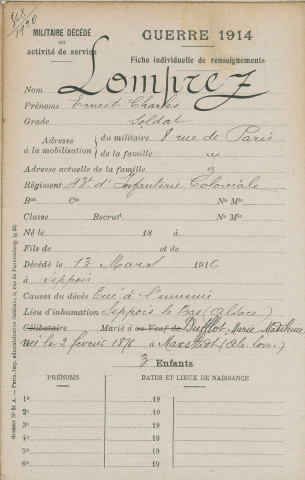 MILITAIRE DÉCÉDÉ
en
activité de service
GUERRE 1914
Fiche individuelle de renseignements
Nom Lomprez
Prénoms Ernest Charles
Grade Soldat
Adresse à la mobilisation
du militaire 8 rue de Paris
de la famille
Adresse actuelle de la famille
Régiment 43e d'Infanterie Coloniale
Bon Cie No Mle
Classe Recrut. No Mle
Né le 18 à
Fils de et de
Décédé le 13 Mars 1916
à Seppois
Causes du décès Tué à l'ennemi
Lieu d'inhumation Seppois le Bas (Alsace)
Célibataire Marié à ou Veuf de Dufflot, Marie
née le 2 février 1876 à
3 Enfants
PRÉNOMS DATES ET LIEUX DE NAISSANCE
1o 19
2o 19
3o 19
4o 19
5o 19
6o 19